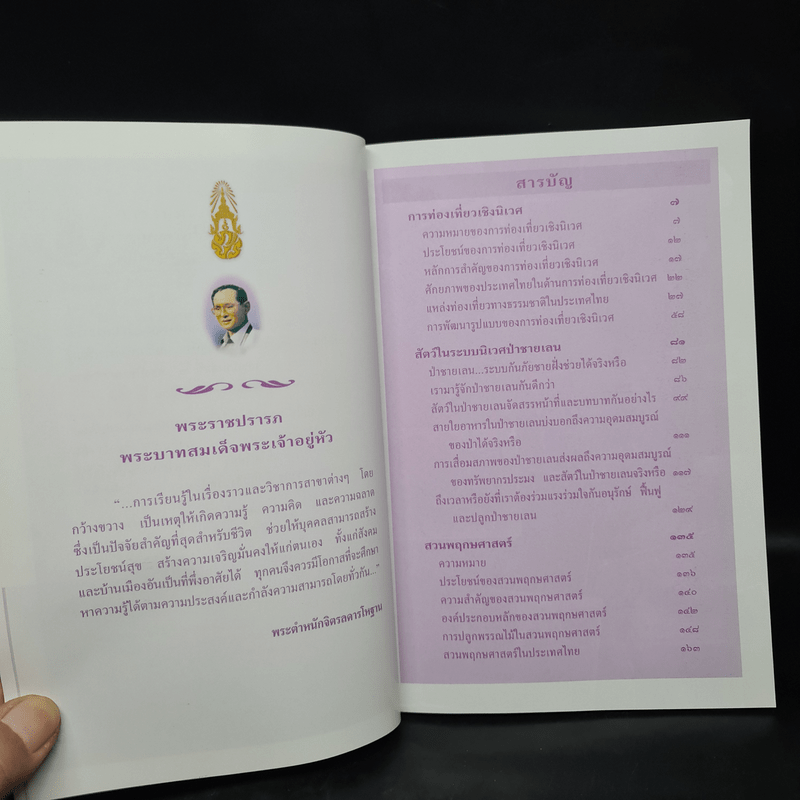 พระราชปรารภ
พระบาทสมเด็จพระเจ้าอยู่หัว
“...การเรียนรู้ในเรื่องราวและวิชาการสาขาต่างๆ โดย
กว้างขวาง เป็นเหตุให้เกิดความรู้ ความคิด และความฉลาด
ซึ่งเป็นปัจจัยสำคัญที่สุดสำหรับชีวิต ช่วยให้บุคคลสามารถสร้าง
ประโยชน์สุข สร้างความเจริญมั่นคงให้แก่ตนเอง ทั้งแก่สังคม
และบ้านเมืองอันเป็นที่พึ่งอาศัยได้ ทุกคนจึงควรมีโอกาสที่จะศึกษา
หาความรู้ได้ตามความประสงค์และกำลังความสามารถโดยทั่วกัน...”
พระตำหนักจิตรลดารโหฐาน
สารบัญ
การท่องเที่ยวเชิงนิเวศ ๗
ความหมายของการท่องเที่ยวเชิงนิเวศ ๗
ประโยชน์ของการท่องเที่ยวเชิงนิเวศ ๑๒
หลักการสำคัญของการท่องเที่ยวเชิงนิเวศ ๑๗
ศักยภาพของประเทศไทยในด้านการท่องเที่ยวเชิงนิเวศ ๒๒
แหล่งท่องเที่ยวทางธรรมชาติในประเทศไทย ๒๗
การพัฒนารูปแบบของการท่องเที่ยวเชิงนิเวศ ๕๘
สัตว์ในระบบนิเวศป่าชายเลน ๘๑
ป่าชายเลน...ระบบกันภัยชายฝั่งช่วยได้จริงหรือ ๘๒
เรามารู้จักป่าชายเลนกันดีกว่า ๘๖
สัตว์ในป่าชายเลนจัดสรรหน้าที่และบทบาทกันอย่างไร ๙๙
สายใยอาหารในป่าชายเลนบ่งบอกถึงความอุดมสมบูรณ์
ของป่าได้จริงหรือ ๑๑๑
การเสื่อมสภาพของป่าชายเลนส่งผลถึงความอุดมสมบูรณ์
ของทรัพยากรประมง และสัตว์ในป่าชายเลนจริงหรือ ๑๑๗
ถึงเวลาหรือยังที่เราต้องร่วมแรงร่วมใจกันอนุรักษ์ ฟื้นฟู
และปลูกป่าชายเลน ๑๒๙
สวนพฤกษศาสตร์ ๑๓๕
ความหมาย ๑๓๕
ประโยชน์ของสวนพฤกษศาสตร์ ๑๓๖
ความสำคัญของสวนพฤกษศาสตร์ ๑๔๐
องค์ประกอบหลักของสวนพฤกษศาสตร์ ๑๔๒
การปลูกพรรณไม้ในสวนพฤกษศาสตร์ ๑๔๘
สวนพฤกษศาสตร์ในประเทศไทย ๑๖๓